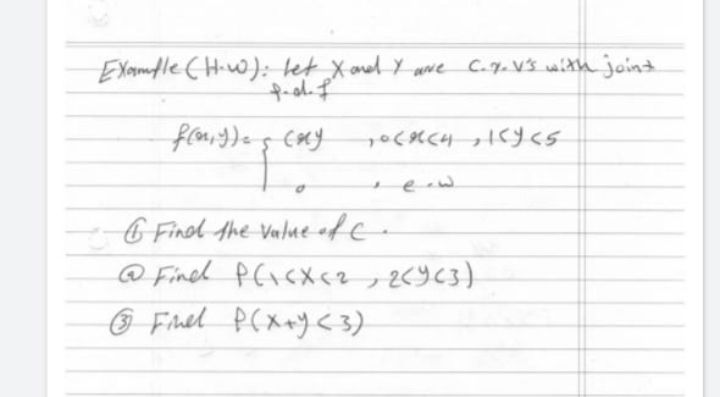 Example (H.w): Let X and Y are C.r.v's with joint
p.d.f
f(x,y) = { cxy , 0<x<4 , 1<y<5
0 , e.w
① Find the value of C.
② Find P(1<X<2 , 2<y<3)
③ Find P(X+y<3)